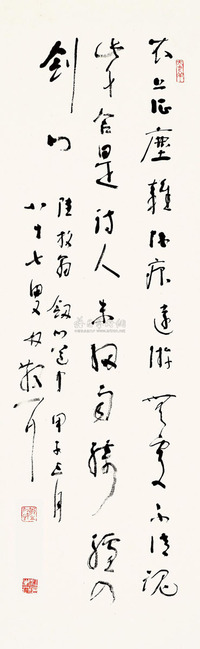 衣上征塵雜酒痕遠游無處不消魂
此身合是詩人未細雨騎驢入
劍門
陸放翁劍門道中甲子
八十七叟林散耳